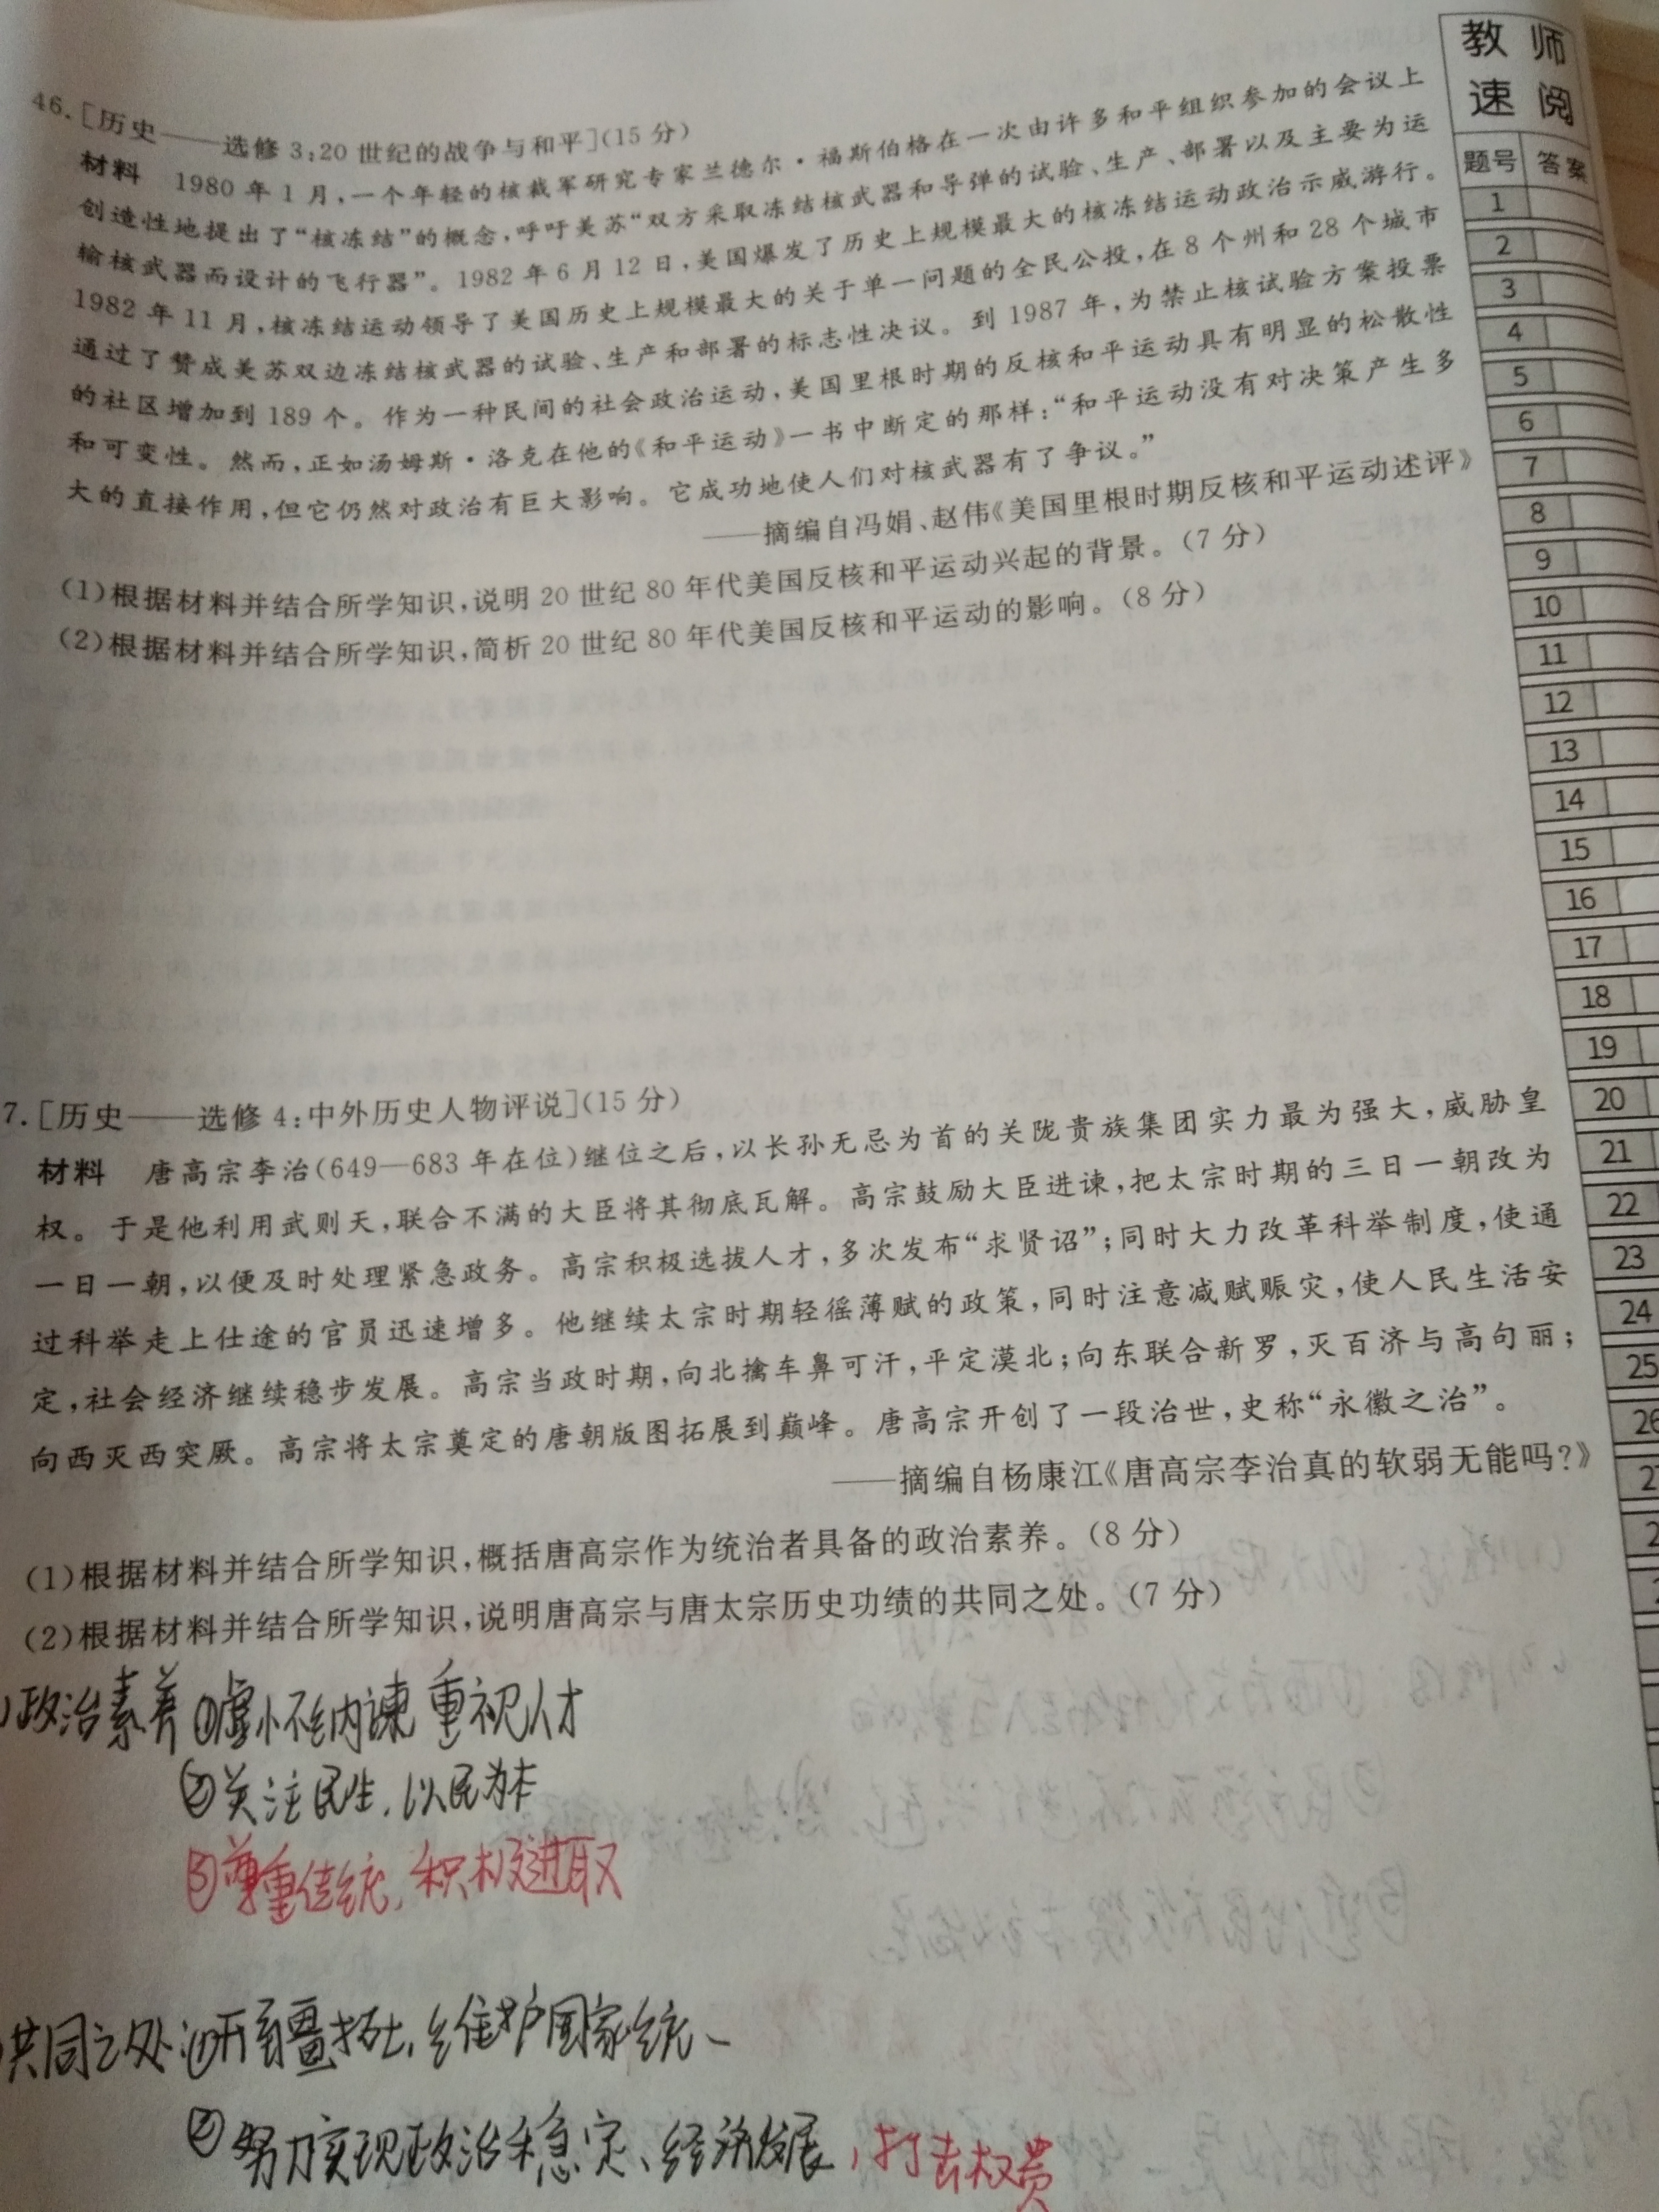 46.[历史——选修 3:20 世纪的战争与和平](15 分)
材料 1980 年 1 月,一个年轻的核裁军研究专家兰德尔·福斯伯格在一次由许多和平组织参加的会议上
创造性地提出了“核冻结”的概念,呼吁美苏“双方采取冻结核武器和导弹的试验、生产、部署以及主要为运
输核武器而设计的飞行器”。1982 年 6 月 12 日,美国爆发了历史上规模最大的核冻结运动政治示威游行。
1982 年 11 月,核冻结运动领导了美国历史上规模最大的关于单一问题的全民公投,在 8 个州和 28 个城市
通过了赞成美苏双边冻结核武器的试验、生产和部署的标志性决议。到 1987 年,为禁止核试验方案投票
的社区增加到 189 个。作为一种民间的社会政治运动,美国里根时期的反核和平运动具有明显的松散性
和可变性。然而,正如汤姆斯·洛克在他的《和平运动》一书中断定的那样:“和平运动没有对决策产生多
大的直接作用,但它仍然对政治有巨大影响。它成功地使人们对核武器有了争议。”
——摘编自冯娟、赵伟《美国里根时期反核和平运动述评》
(1)根据材料并结合所学知识,说明 20 世纪 80 年代美国反核和平运动兴起的背景。(7 分)
(2)根据材料并结合所学知识,简析 20 世纪 80 年代美国反核和平运动的影响。(8 分)
7.[历史——选修 4:中外历史人物评说](15 分)
材料 唐高宗李治(649—683 年在位)继位之后,以长孙无忌为首的关陇贵族集团实力最为强大,威胁皇
权。于是他利用武则天,联合不满的大臣将其彻底瓦解。高宗鼓励大臣进谏,把太宗时期的三日一朝改为
一日一朝,以便及时处理紧急政务。高宗积极选拔人才,多次发布“求贤诏”;同时大力改革科举制度,使通
过科举走上仕途的官员迅速增多。他继续太宗时期轻徭薄赋的政策,同时注意减赋赈灾,使人民生活安
定,社会经济继续稳步发展。高宗当政时期,向北擒车鼻可汗,平定漠北;向东联合新罗,灭百济与高句丽;
向西灭西突厥。高宗将太宗奠定的唐朝版图拓展到巅峰。唐高宗开创了一段治世,史称“永徽之治”。
——摘编自杨康江《唐高宗李治真的软弱无能吗?》
(1)根据材料并结合所学知识,概括唐高宗作为统治者具备的政治素养。(8 分)
(2)根据材料并结合所学知识,说明唐高宗与唐太宗历史功绩的共同之处。(7 分)
)政治素养 ①虚怀纳谏 重视人才
②关注民生,以民为本
③尊重传统,积极进取
共同之处:①开疆拓土,维护国家统一
②努力实现政治稳定、经济发展,打击权贵
教 师
速 阅
题号 答案
1
2
3
4
5
6
7
8
9
10
11
12
13
14
15
16
17
18
19
20
21
22
23
24
25
26